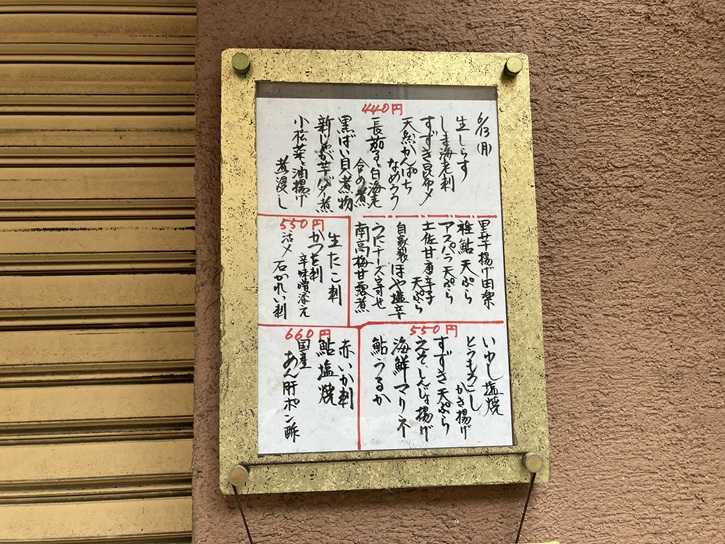 6/13(月)
440円
生しらす
しま海老刺
すずき昆布〆
天然かんぱち
なめろう
長茄子と白海老
含め煮
黒ばい貝煮物
新じゃが芋バター煮
小松菜と油揚げ
煮浸し
里芋揚げ出し
稚鮎天ぷら
アスパラ天ぷら
土佐甘唐辛子
天ぷら
自家製ほや塩辛
うにチーズ寄せ
南高梅甘露煮
550円
生たこ刺
かつを刺
辛味噌添え
活〆石がれい刺
550円
いわし塩焼
とうもろこし
かき揚げ
すずき天ぷら
えそしんじょ揚げ
海鮮マリネ
鮎うるか
660円
赤いか刺
鮎塩焼
国産
あん肝ポン酢